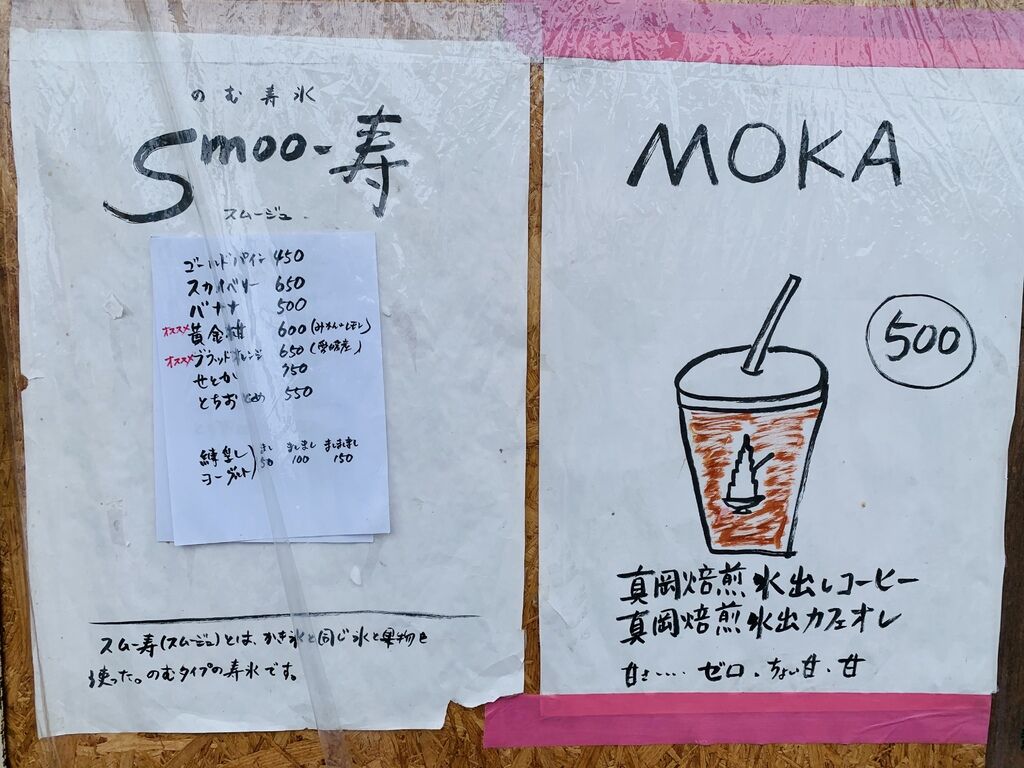 のむ寿氷
Smoo-寿
スムージュ
ゴールドパイン 450
スカイベリー 650
バナナ 500
オススメ 黄金柑 600 (みねいしぼし)
オススメ ブラッドオレンジ 650 (愛媛産)
せとか 750
とちおとめ 550
まし ましまし ましましまし
練乳
ヨーグルト
50 100 150
スムー寿(スムージュ)とは、かき氷と同じ氷と果物を
使った。のむタイプの寿氷です。
MOKA
500
真岡焙煎 水出しコーヒー
真岡焙煎 水出カフェオレ
甘さ‥‥ ゼロ、ちょい甘、甘